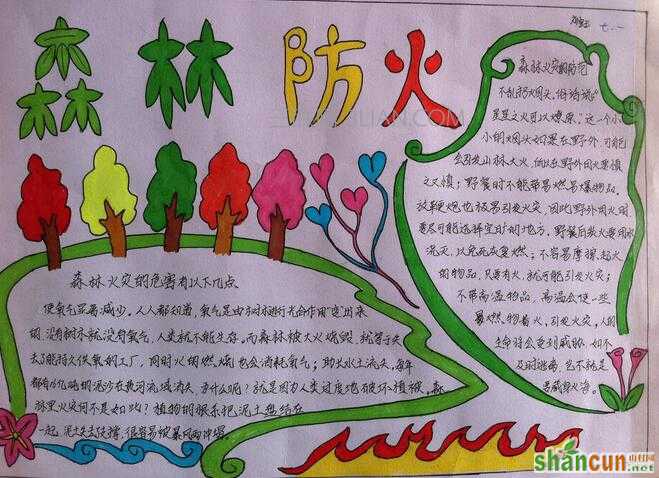 七、一
森林防火
森林火灾的防范
不乱扔烟头,俗话说"
星星之火可以燎原",这一个小
小的烟头如果在野外,可能
会引发山林大火,所以在野外用火要慎
之又慎;野餐时不能带易燃易爆物品。
放鞭炮也极易引发火灾,因此野外用火时
要尽可能选择空旷的地方,野餐后装火要用水
浇灭,以免死灰复燃;不容易摩擦起火
的物品,只要有火,就可能引发火灾;
不带高温物品,高温会使一些
易燃物着火,引发火灾,人的
生命将会受到威胁,如不
及时逃离,
森林火灾的危害有以下几点
使氧气显著减少,人人都知道,氧气是由树木进行光合作用"造"出来
的,没有树木就没有氧气,人类就不能生存,而森林被大火烧毁,就等于失
去了能持久供氧的工厂,同时火的燃烧也会消耗氧气;助长水土流失,每年
都有16亿吨的泥沙在黄河流域消失,为什么呢?就是因为人类过度地破坏植被,森
林里火灾何不是如此?植物的根系把泥土盘结在
一起,泥土失去支撑,很容易被暴风雨冲塌。
shancun.net
山村网